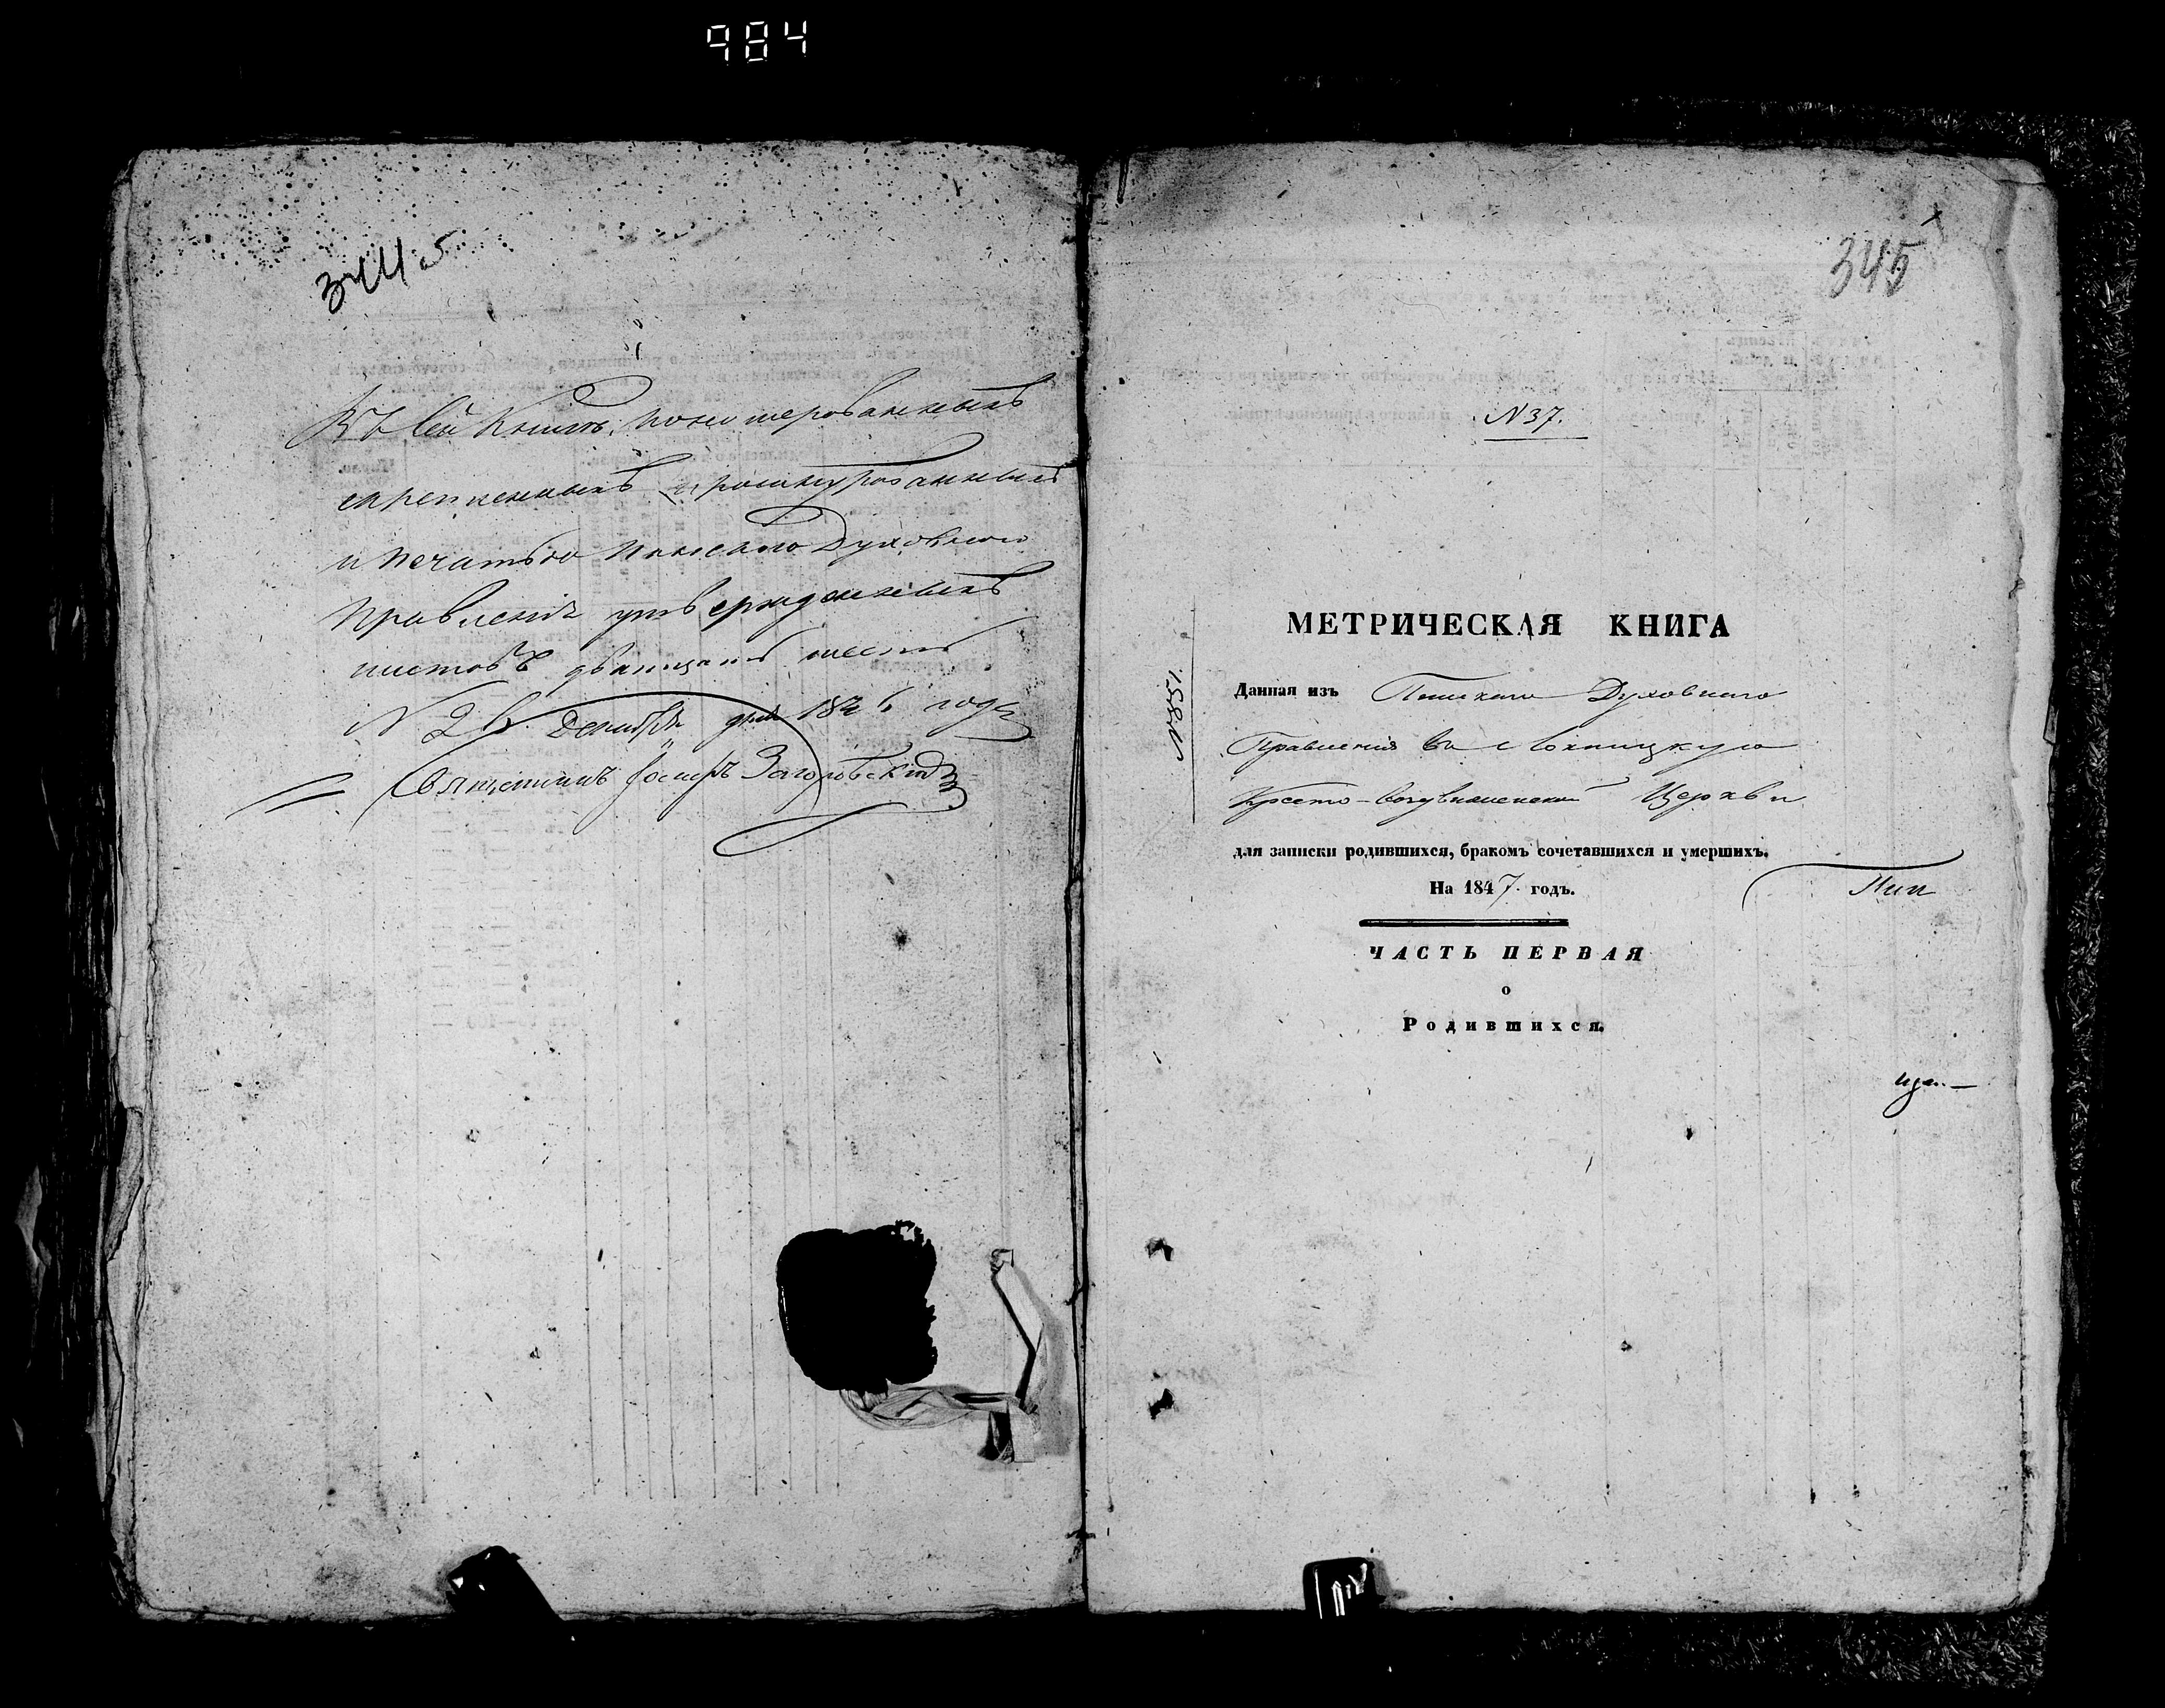 984
344 об
Въ сей Книгѣ, пономерованныхъ
скрепленныхъ и прошнурованныхъ
и печатью Пинскаго Духовнаго
Правленія утвержденныхъ
листовъ двадцать шесть
Декабря дня 1846 года
Священникъ Іосифъ Загоровскій
345
N 37.
N 851.
МЕТРИЧЕСКАЯ КНИГА
Данная изъ Пинскаго Духовнаго
Правленія въ
Кресто-Воздвиженской Церкви
для записки родившихся, бракомъ сочетавшихся и умершихъ.
На 1847 годъ.
ЧАСТЬ ПЕРВАЯ
о
Родившихся.